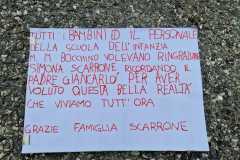 TUTTI I BAMBINI ED IL PERSONALE
DELLA SCUOLA DELL'INFANZIA
M. M. BOCCHINO VOLEVANO RINGRAZIARE
SIMONA SCARRONE RICORDANDO IL
PADRE GIANCARLO PER AVER
VOLUTO QUESTA BELLA REALTÀ
CHE VIVIAMO TUTT'ORA
GRAZIE FAMIGLIA SCARRONE